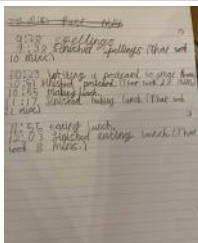 9:28 spellings
9:38 finished spellings (That took
10 mins.)
10:23 Writing a postcard to
10:51 finished postcard. (That took 28 mins)
10:55 Making lunch.
11:17 finished making lunch (That took
22 mins)
11:55 eating lunch.
12:03 finished eating lunch (That
took 8 mins.)